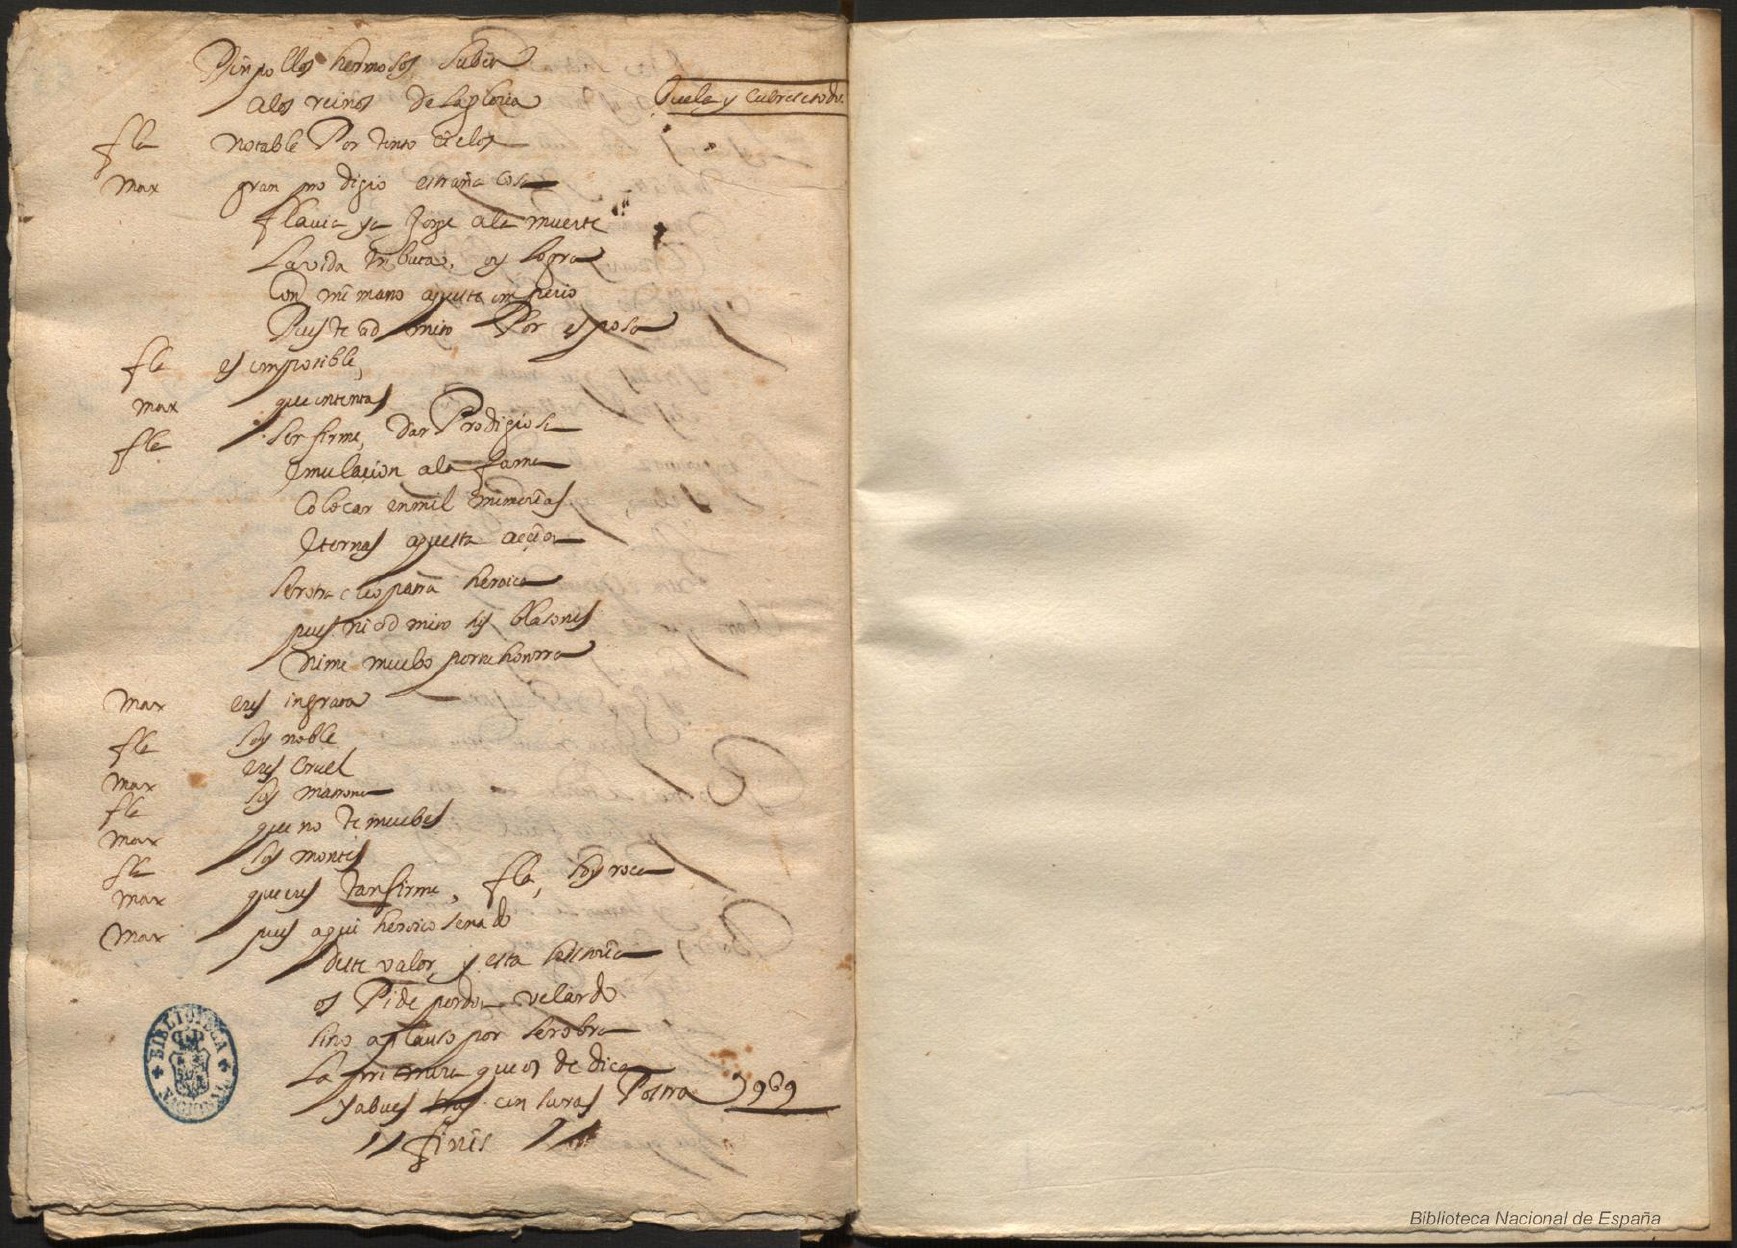 Pinpollos hermosos subid
a los reinos de la gloria
Buela y cubrese todo.
fla notable Portento cielos
max gran prodigio estraña cosa
flauia ya Jorje ala muerte
La vida tributa, oy logra
Con mi mano aqueste imperio
Pues te admito Por esposa
fla es imposible,
max que intentas
fla ser firme, dar Prodigiosa
emulacion ala fama
Colocar en mil memorias
Eternas aquesta accion
ser otra cleopatra heroica
pues ni admito sus blasones
ni me muebo por tu honrra
max eres ingrata
fla soy noble
max eres cruel
fla soy matrona
max que no te muebes
fla soy montes
max que eres tan firme, fla, soy roca
max pues aqui heroico senado
deste valor, y esta historia
os Pide perdon velardo
sino aplauso por ser obra
La primera que os dedica
y a bues tras cen suras Postra 969
finis
BIBLIOTECA NACIONAL
Biblioteca Nacional de España